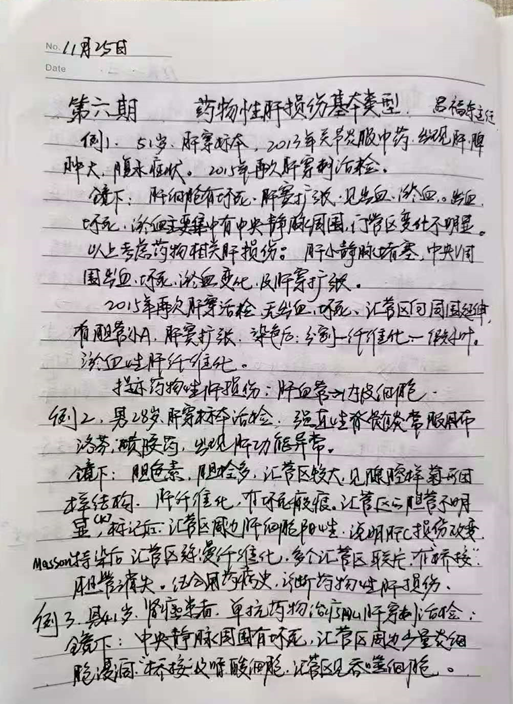 No. 11月25日
Date
第六期 药物性肝损伤基本类型. 吕福东主任
例1. 51岁. 肝穿标本, 2013年关节炎服中药. 出现肝脾
肿大, 腹水症状。2015年再次肝穿刺活检。
镜下: 肝细胞有坏死. 肝窦扩张, 见出血, 淤血。出血
坏死, 淤血主要集中有中央静脉周围, 门管区变化不明显。
以上考虑药物相关肝损伤: 肝小静脉堵塞, 中央周
围出血, 坏死, 淤血变化, 及肝窦扩张。
2015年再次肝穿活检 无出血、坏死、汇管区向周围延伸,
有胆管小A, 肝窦扩张. 染色后: 分割—纤维化—假小叶.
淤血性肝纤维化.
提示药物性肝损伤: 肝血管→内皮细胞.
例2, 男28岁. 肝穿标本活检. 强直性脊髓炎常服用布
洛芬, 喷胶药, 出现肝功能异常。
镜下: 胆色素, 胆栓多, 汇管区较大, 见腺腔样菊形团
样结构. 肝纤维化, 有坏死瘢痕。汇管区内胆管不明
显, 标记后: 汇管区周边肝细胞阳性, 说明肝C损伤改变.
Masson染后汇管区轻变纤维化, 多个汇管区联片, 有"桥接"
胆管消失. 结合用药病史, 诊断药物性肝损伤.
例3. 男41岁. 肾癌患者. 单抗药物治疗 肝穿刺活检:
镜下: 中央静脉周围有坏死, 汇管区周边少量炎细
胞浸润. "桥接"及嗜酸细胞. 汇管区见吞噬细胞。